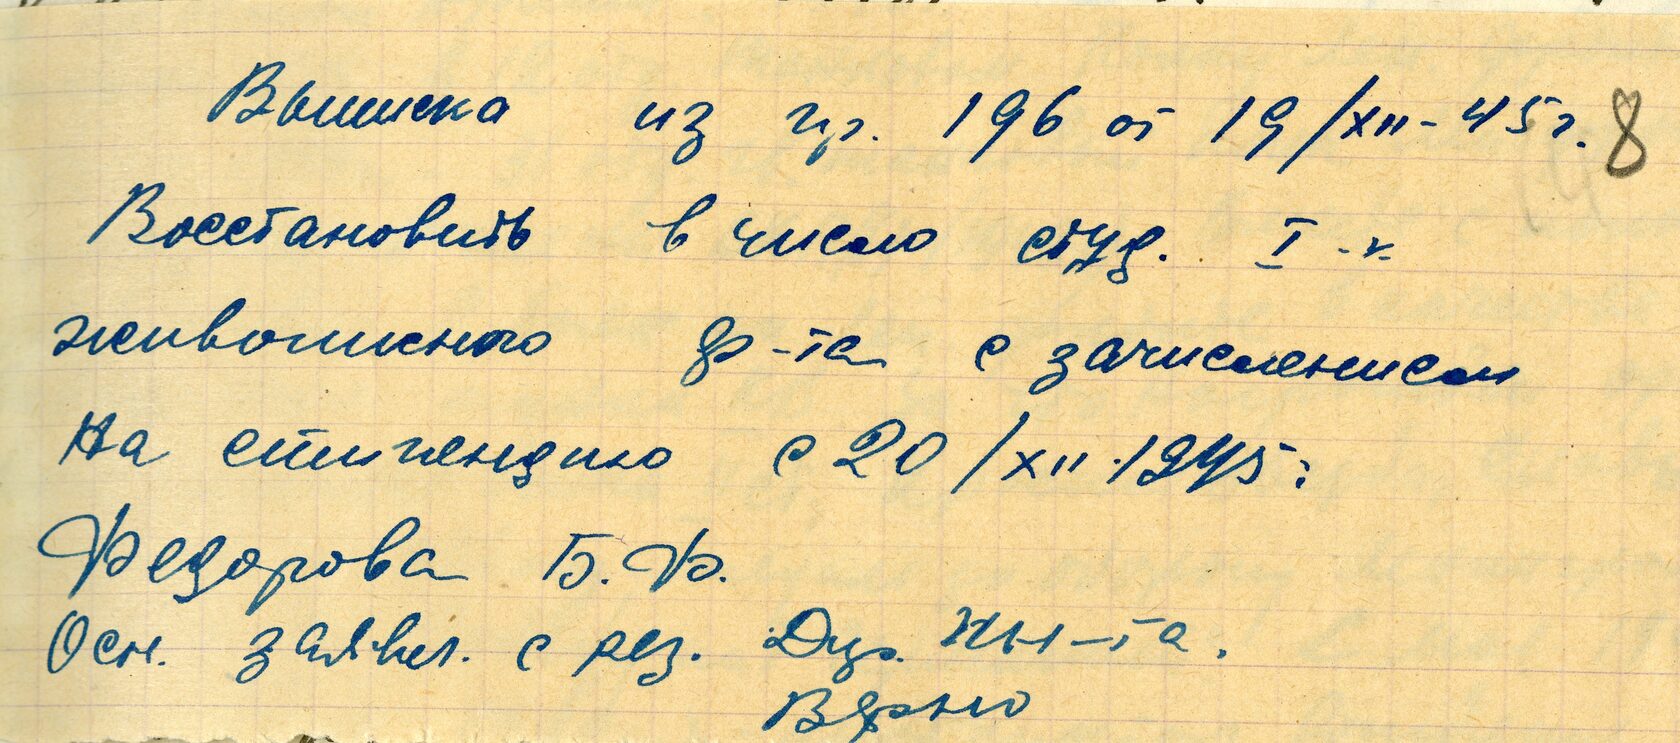 Выписка из пр. 196 от 19/XII-45г. 8
Восстановить в число студ. I-к.
живописного ф-та с зачислением
на стипендию с 20/XII.1945г.
Федорова Б.Ф.
Осн. заявл. с рез. Дир. Ин-та.
Верно